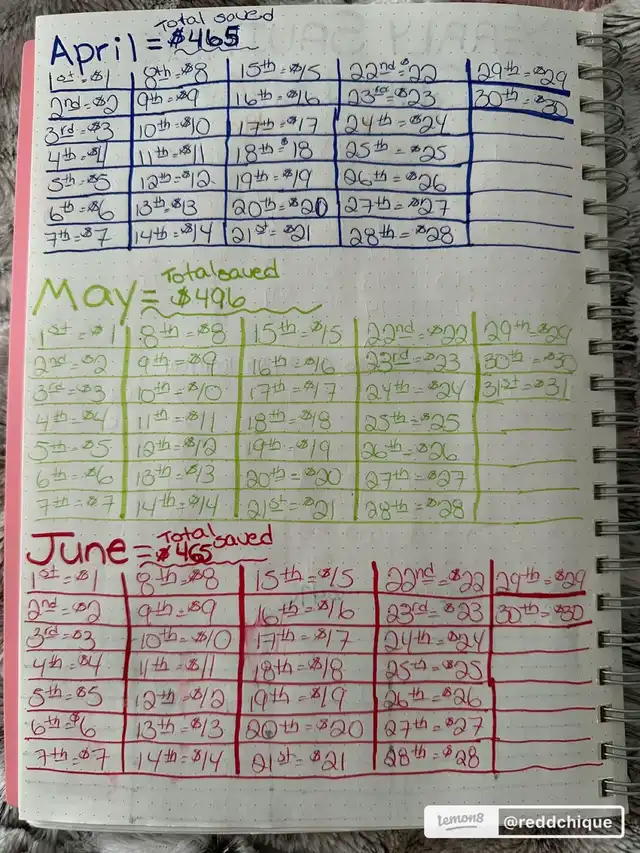 Total saved
April = $465
1st = $1 8th = $8 15th = $15 22nd = $22 29th = $29
2nd = $2 9th = $9 16th = $16 23rd = $23 30th = $30
3rd = $3 10th = $10 17th = $17 24th = $24
4th = $4 11th = $11 18th = $18 25th = $25
5th = $5 12th = $12 19th = $19 26th = $26
6th = $6 13th = $13 20th = $20 27th = $27
7th = $7 14th = $14 21st = $21 28th = $28
Total saved
May = $496
1st = $1 8th = $8 15th = $15 22nd = $22 29th = $29
2nd = $2 9th = $9 16th = $16 23rd = $23 30th = $30
3rd = $3 10th = $10 17th = $17 24th = $24 31st = $31
4th = $4 11th = $11 18th = $18 25th = $25
5th = $5 12th = $12 19th = $19 26th = $26
6th = $6 13th = $13 20th = $20 27th = $27
7th = $7 14th = $14 21st = $21 28th = $28
Total saved
June = $465
1st = $1 8th = $8 15th = $15 22nd = $22 29th = $29
2nd = $2 9th = $9 16th = $16 23rd = $23 30th = $30
3rd = $3 10th = $10 17th = $17 24th = $24
4th = $4 11th = $11 18th = $18 25th = $25
5th = $5 12th = $12 19th = $19 26th = $26
6th = $6 13th = $13 20th = $20 27th = $27
7th = $7 14th = $14 21st = $21 28th = $28
lemon8 @reddchique